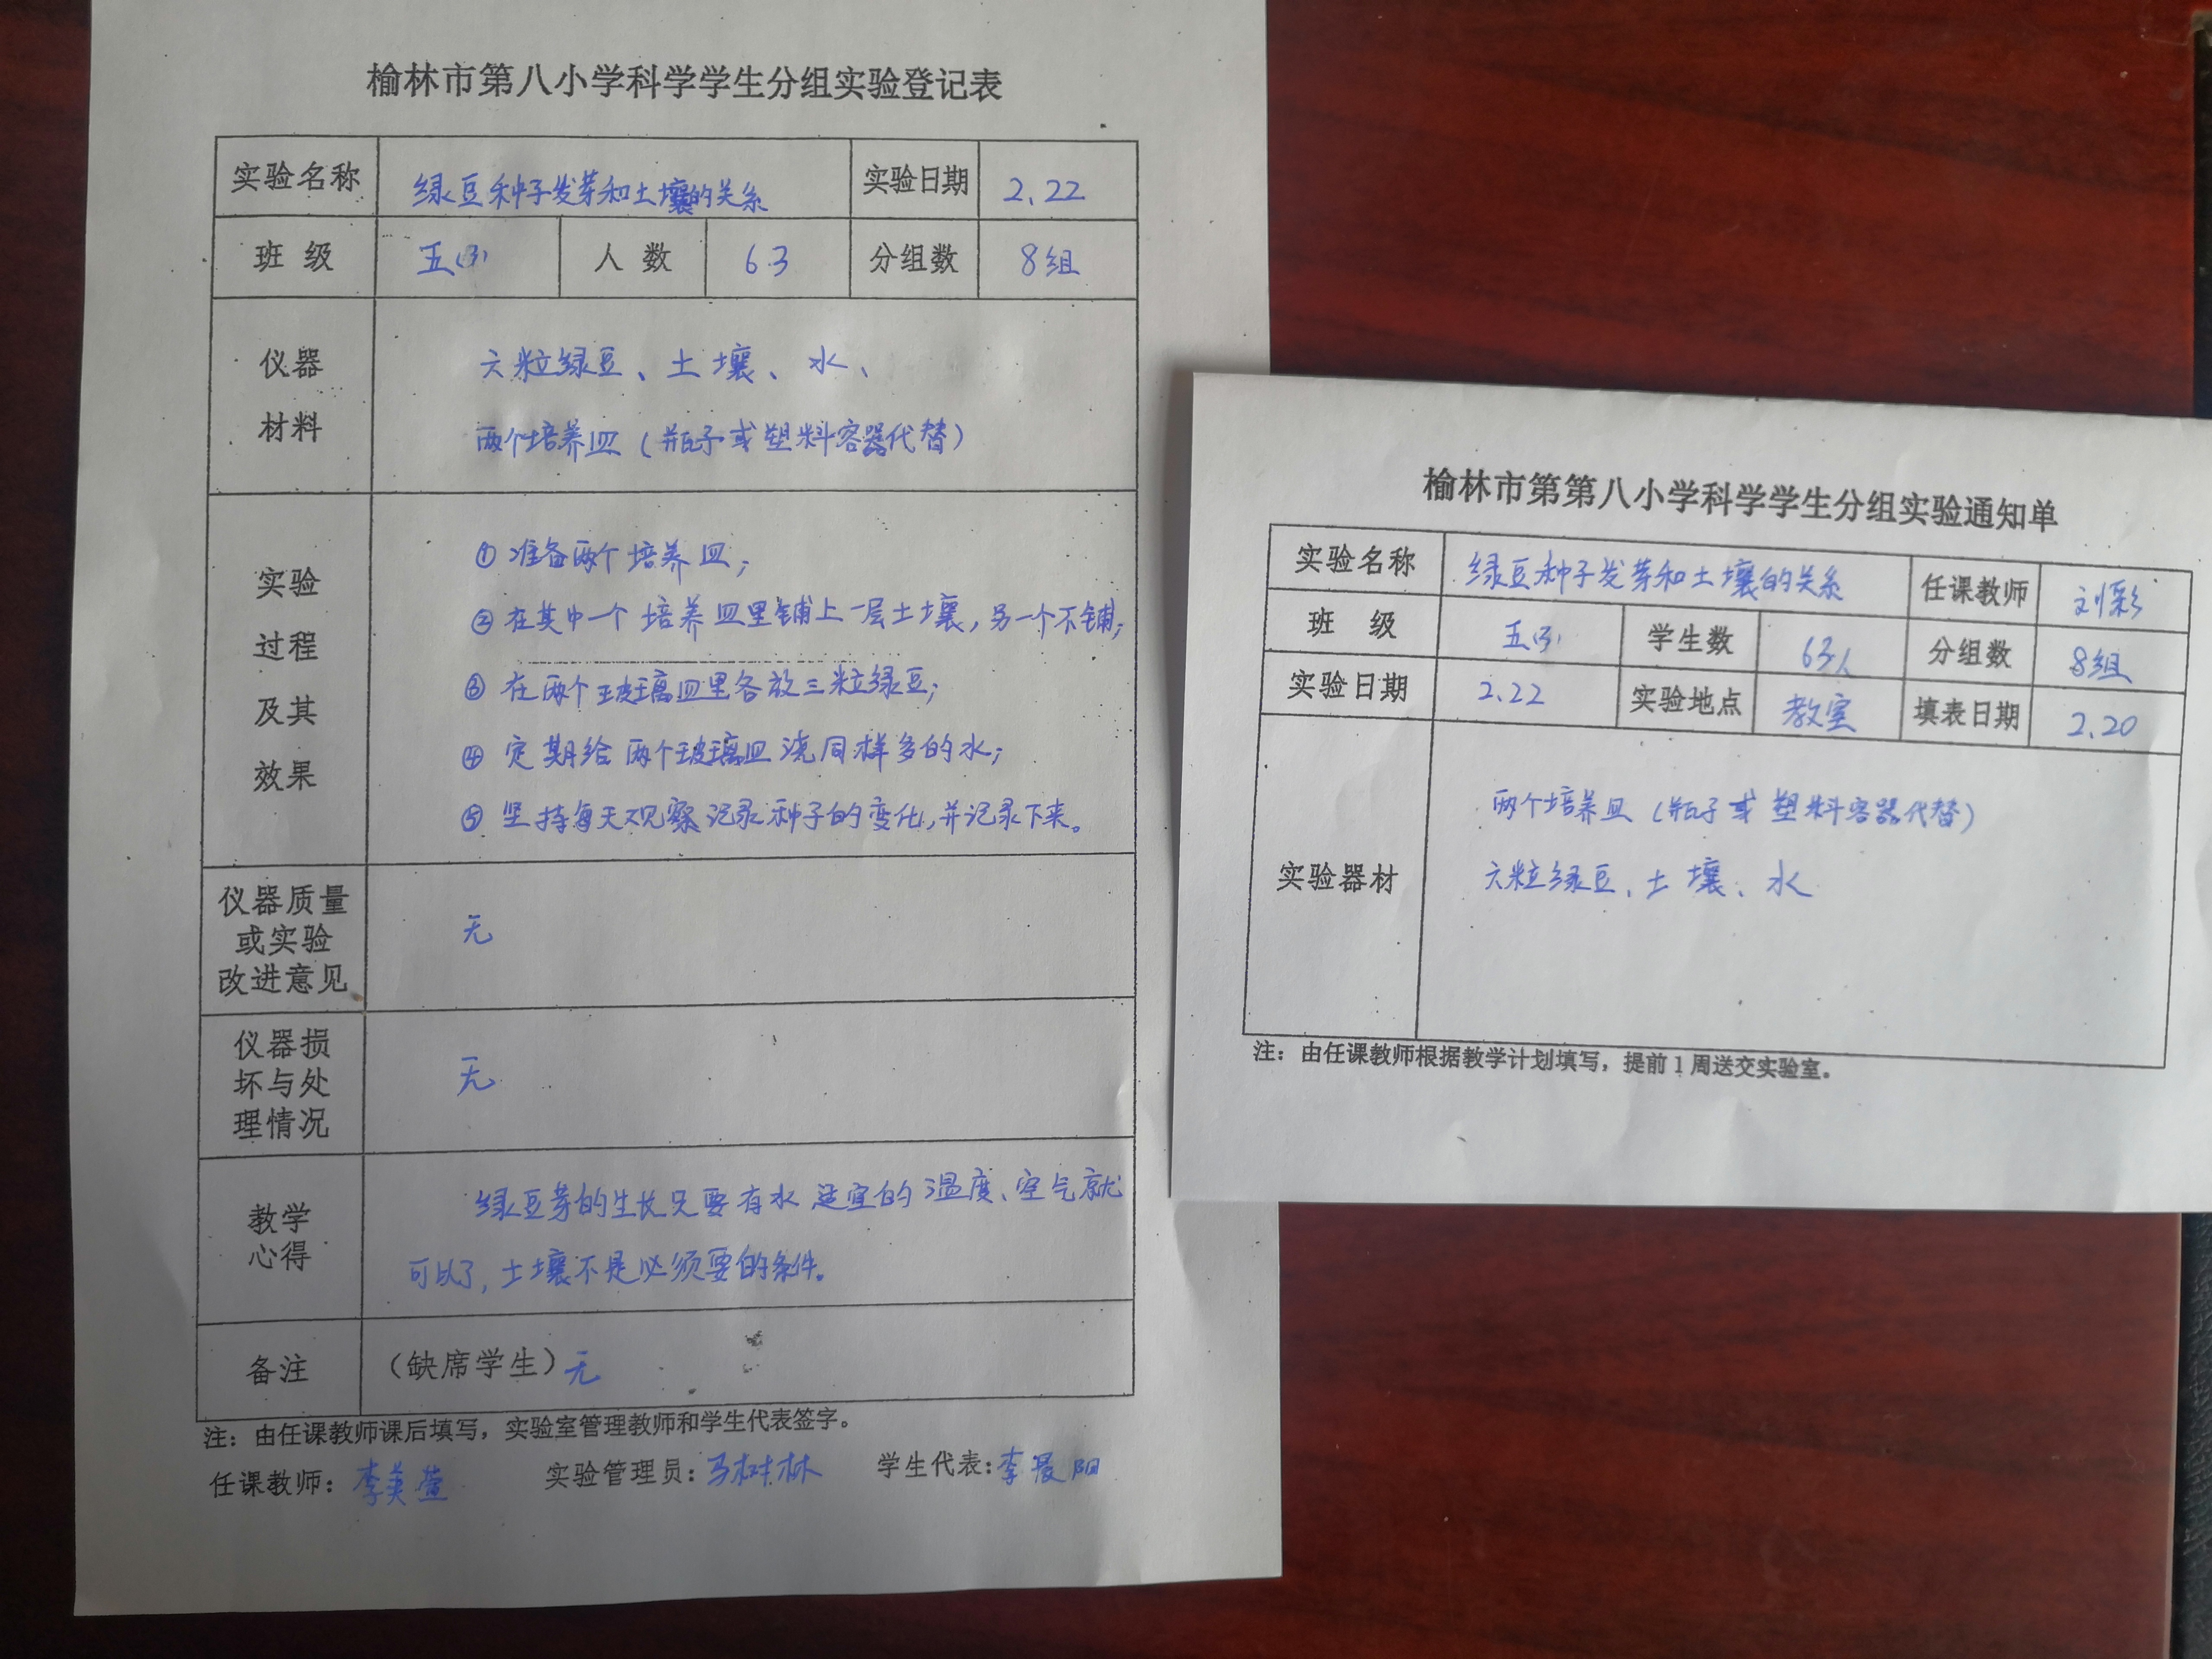 榆林市第八小学科学学生分组实验登记表
实验名称 绿豆种子发芽和土壤的关系 实验日期 2.22
班 级 五(3) 人 数 63 分组数 8组
仪器
材料
六粒绿豆、土壤、水、
两个培养皿（瓶子或塑料容器代替）
实验
过程
及其
效果
①准备两个培养皿；
②在其中一个培养皿里铺上一层土壤，另一个不铺；
③在两个玻璃皿里各放三粒绿豆；
④定期给两个玻璃皿浇同样多的水；
⑤坚持每天观察记录种子的变化，并记录下来。
仪器质量
或实验
改进意见
无
仪器损
坏与处
理情况
无
教学
心得
绿豆芽的生长只要有水 适宜的温度、空气就
可以了，土壤不是必须要的条件。
备注 （缺席学生）无
注：由任课教师课后填写，实验室管理教师和学生代表签字。
任课教师：李美萱 实验管理员：马树林 学生代表：李晨阳
榆林市第第八小学科学学生分组实验通知单
实验名称 绿豆种子发芽和土壤的关系 任课教师 刘彩
班 级 五(3) 学生数 63人 分组数 8组
实验日期 2.22 实验地点 教室 填表日期 2.20
实验器材
两个培养皿（瓶子或塑料容器代替）
六粒绿豆、土壤、水
注：由任课教师根据教学计划填写，提前1周送交实验室。